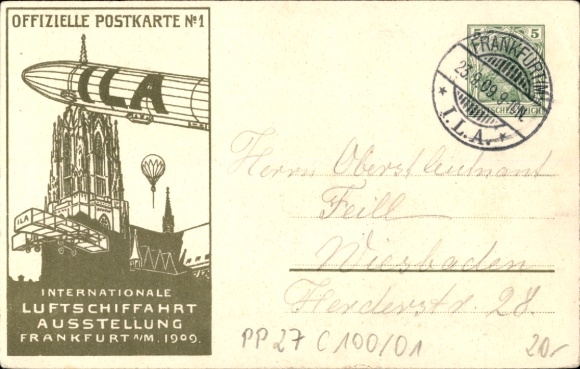 OFFIZIELLE POSTKARTE № 1
ILA
ILA
INTERNATIONALE
LUFTSCHIFFAHRT
AUSSTELLUNG
FRANKFURT A/M. 1909.
5 5
FRANKFURT (M.)
23.8.09. 9-10V.
* I.L.A. *
Herrn Oberstleutnant
Feill
Wiesbaden
Herderstr. 28.
PP 27 C 100/01
20,-